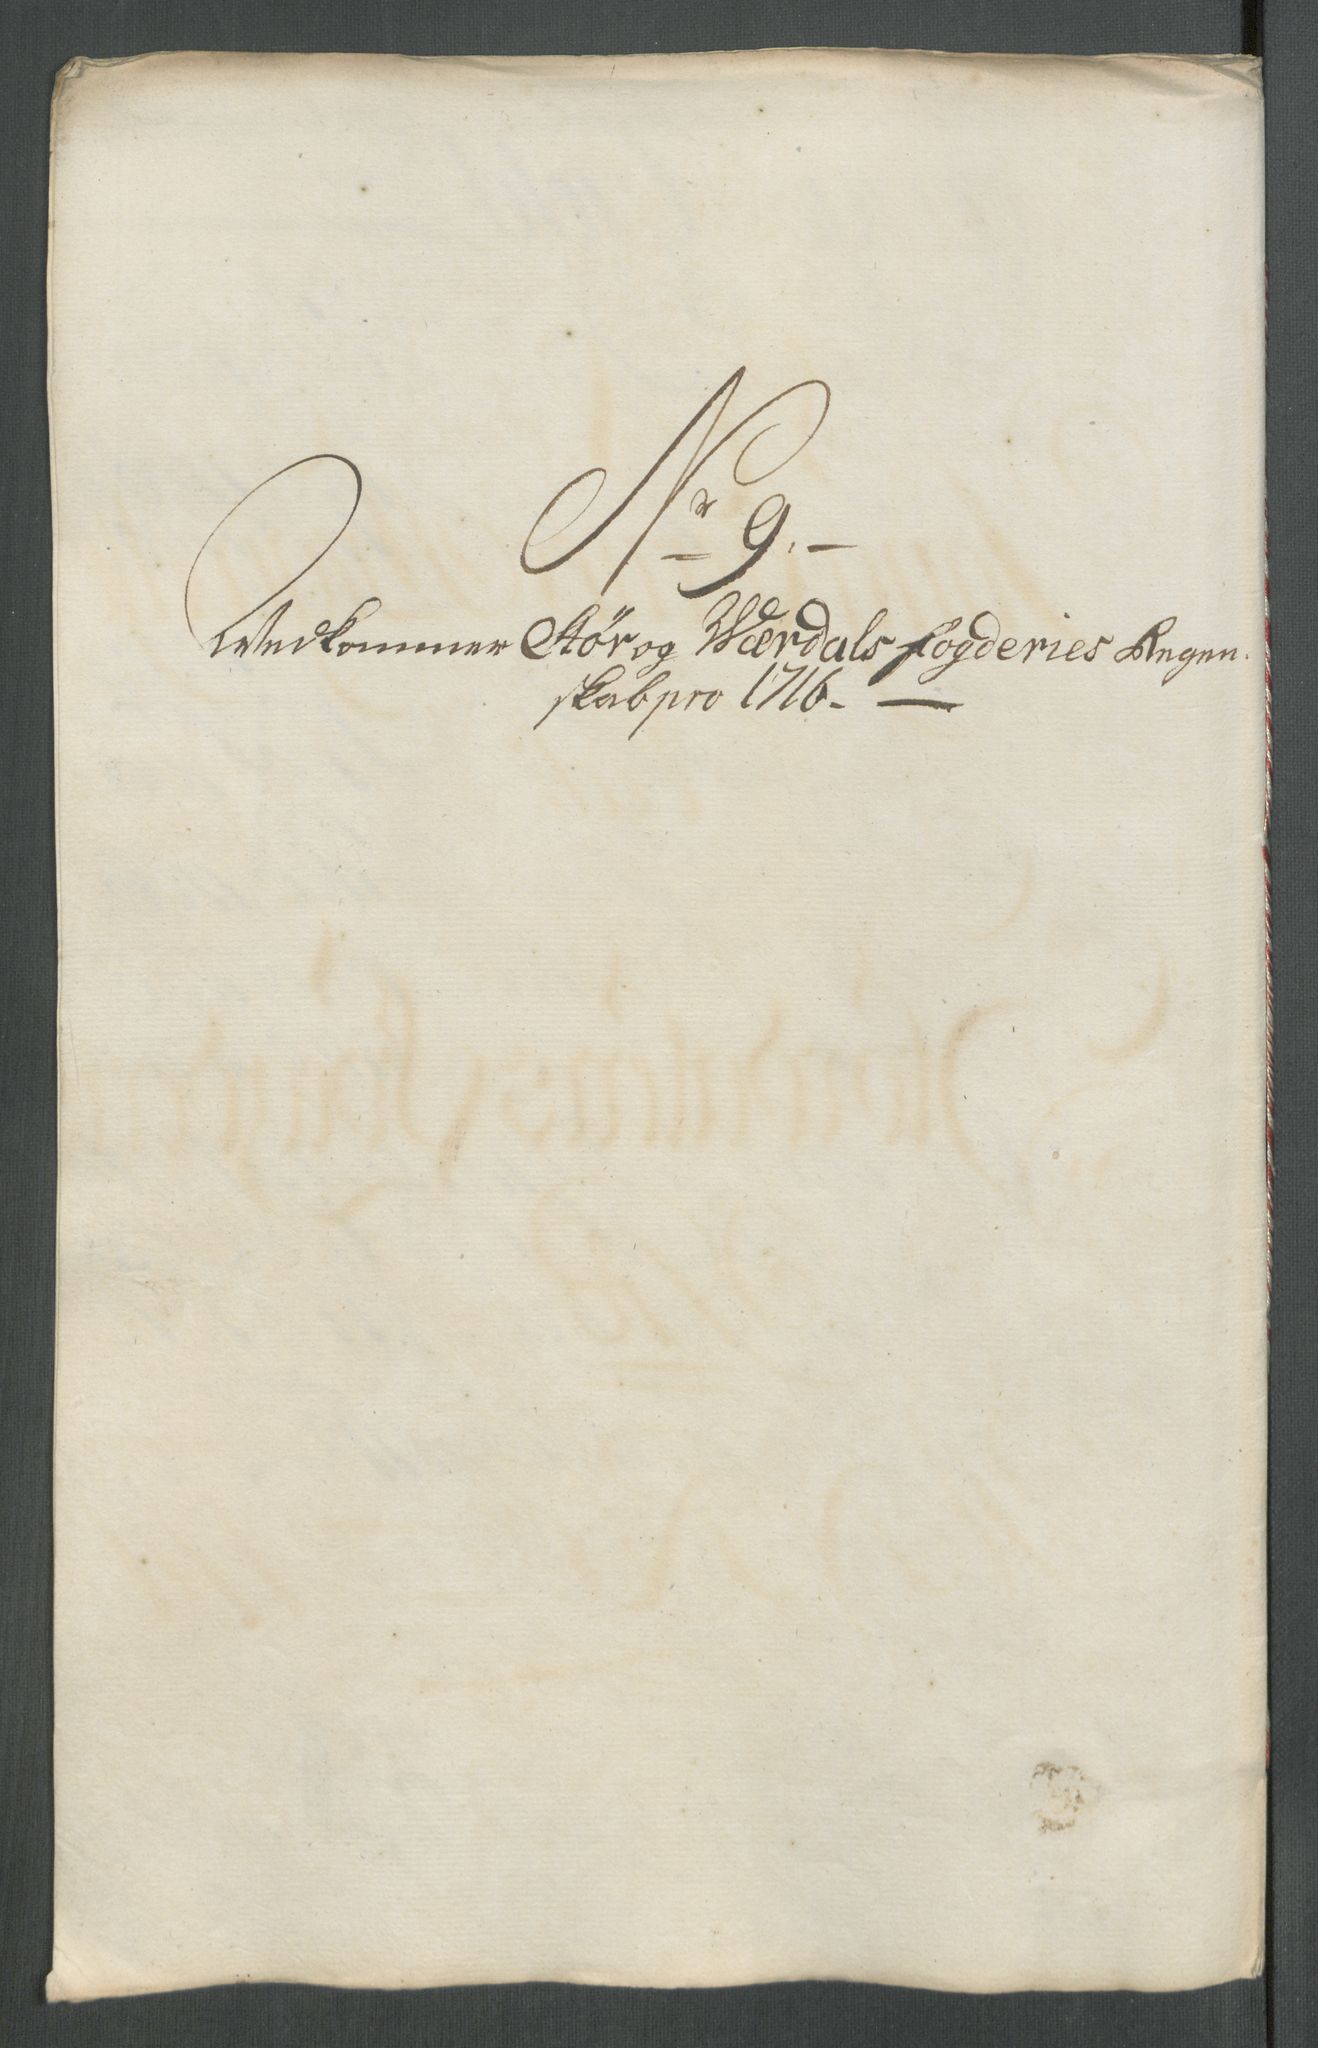 Nr 9.
Vedkommer Stør og Værdals fogderies Regen-
skab pro 1716.